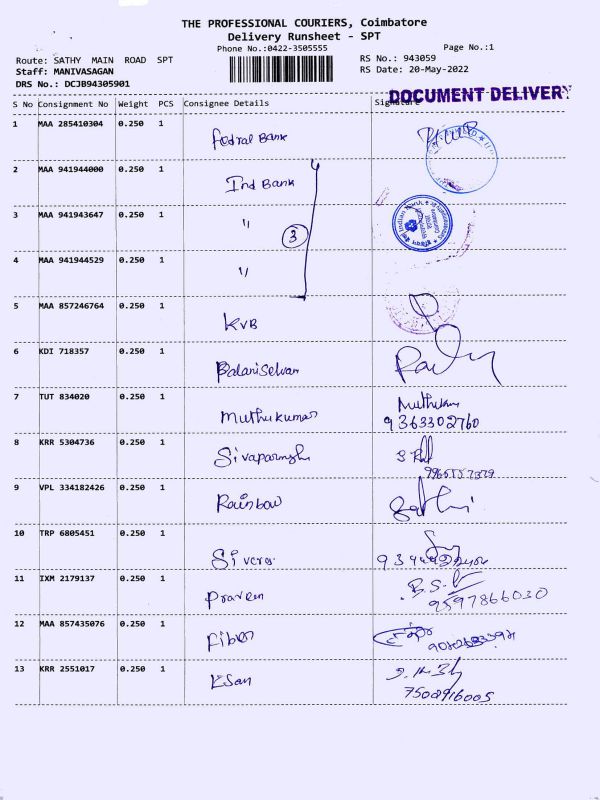 THE PROFESSIONAL COURIERS, Coimbatore
Delivery Runsheet - SPT
Phone No.:0422-3505555
Page No.:1
Route: SATHY MAIN ROAD SPT
RS No.: 943059
Staff: MANIVASAGAN
RS Date: 20-May-2022
DRS No.: DCJB94305901
DOCUMENT DELIVERY
S No Consignment No Weight PCS Consignee Details Signature
1 MAA 285410304 0.250 1 fedral Bank
2 MAA 941944000 0.250 1 Ind Bank
3 MAA 941943647 0.250 1 " 3
4 MAA 941944529 0.250 1 "
5 MAA 857246764 0.250 1 KVB
6 KDI 718357 0.250 1 Balaniselvan
7 TUT 834020 0.250 1 Muthukumar
9363302760
8 KRR 5304736 0.250 1
9 VPL 334182426 0.250 1 Rainbow Sathi
10 TRP 6805451 0.250 1
11 IXM 2179137 0.250 1 Praveen
9597866030
12 MAA 857435076 0.250 1 Fiber
13 KRR 2551017 0.250 1 Ksan
7502916005